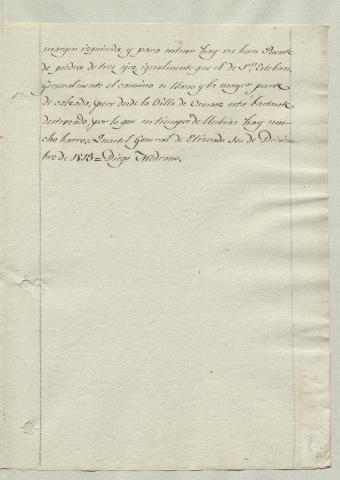 margen izquierda, y para entrar hay un buen Puente
de piedra de tres ojos, igualmente que el de Sn. Esteban,
generalmente el camino es llano y la mayor parte
de calzada, pero desde la Villa de
está bastante
destrozado, por lo que en tiempo de llubias hay mu-
cho barro. Quartel General de
de Diciem-
bre de 1813 = Diego Medrano.